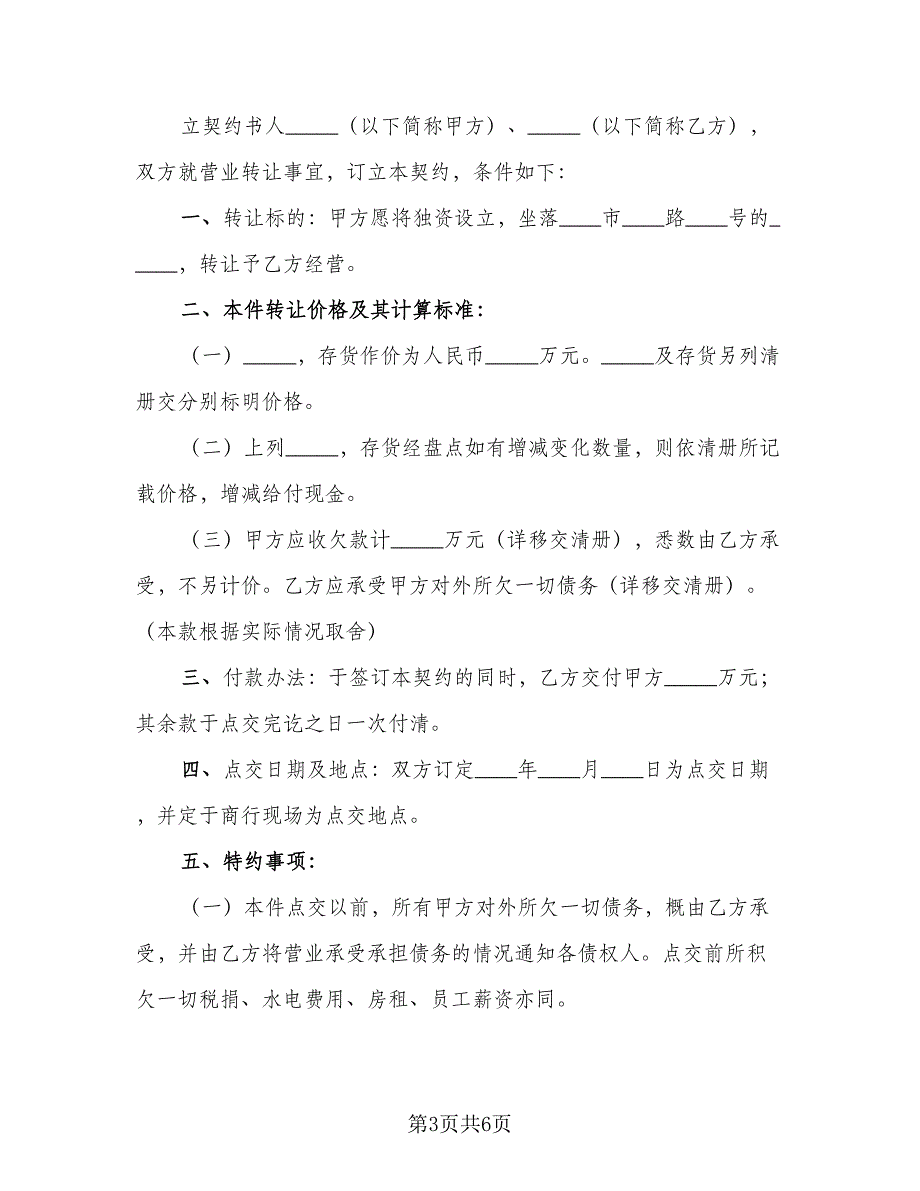 立契约书人_____（以下简称甲方）、_____（以下简称乙方），
双方就营业转让事宜，订立本契约，条件如下：
一、转让标的：甲方愿将独资设立，坐落____市____路____号的_
____，转让予乙方经营。
二、本件转让价格及其计算标准：
（一）_____，存货作价为人民币_____万元。_____及存货另列清
册交分别标明价格。
（二）上列_____，存货经盘点如有增减变化数量，则依清册所记
载价格，增减给付现金。
（三）甲方应收欠款计_____万元（详移交清册），悉数由乙方承
受，不另计价。乙方应承受甲方对外所欠一切债务（详移交清册）。
（本款根据实际情况取舍）
三、付款办法：于签订本契约的同时，乙方交付甲方_____万元；
其余款于点交完讫之日一次付清。
四、点交日期及地点：双方订定____年____月____日为点交日期
，并定于商行现场为点交地点。
五、特约事项：
（一）本件点交以前，所有甲方对外所欠一切债务，概由乙方承
受，并由乙方将营业承受承担债务的情况通知各债权人。点交前所积
欠一切税捐、水电费用、房租、员工薪资亦同。
第3页共6页